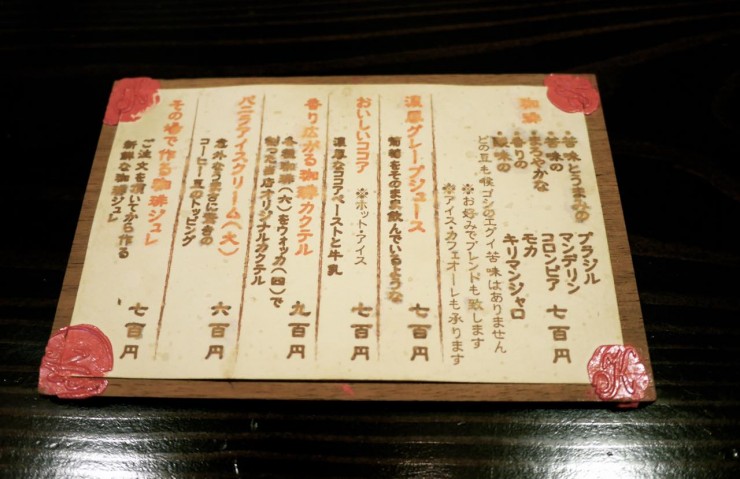 珈琲
・苦味とうまみの ブラジル
・苦味の マンデリン
・まろやかな コロンビア
・香りの モカ
・酸味の キリマンジャロ
七百円
どの豆も喉ゴシのエグイ苦味はありません
※お好みでブレンドも致します
※アイス・カフェオーレも承ります
濃厚グレープジュース
葡萄をそのまま飲んでいるような
七百円
おいしいココア
※ホット・アイス
濃厚なココアペーストと牛乳
七百円
香り広がる珈琲カクテル
各種珈琲(六)をウォッカ(四)で
割った当店オリジナルカクテル
九百円
バニラアイスクリーム(大)
意外なうまさに驚きの
コーヒー豆のトッピング
六百円
その場で作る珈琲ジュレ
ご注文を頂いてから作る
新鮮な珈琲ジュレ
七百円